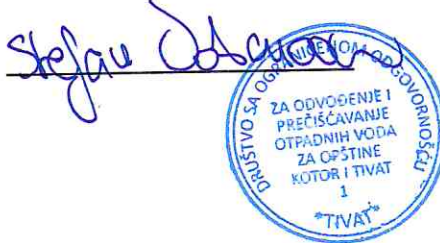 Stefan
DRUŠTVO SA OGRANIČENOM ODGOVORNOŠĆU
ZA ODVOĐENJE I
PREČIŠĆAVANJE
OTPADNIH VODA
ZA OPŠTINE
KOTOR I TIVAT
1
*TIVAT*